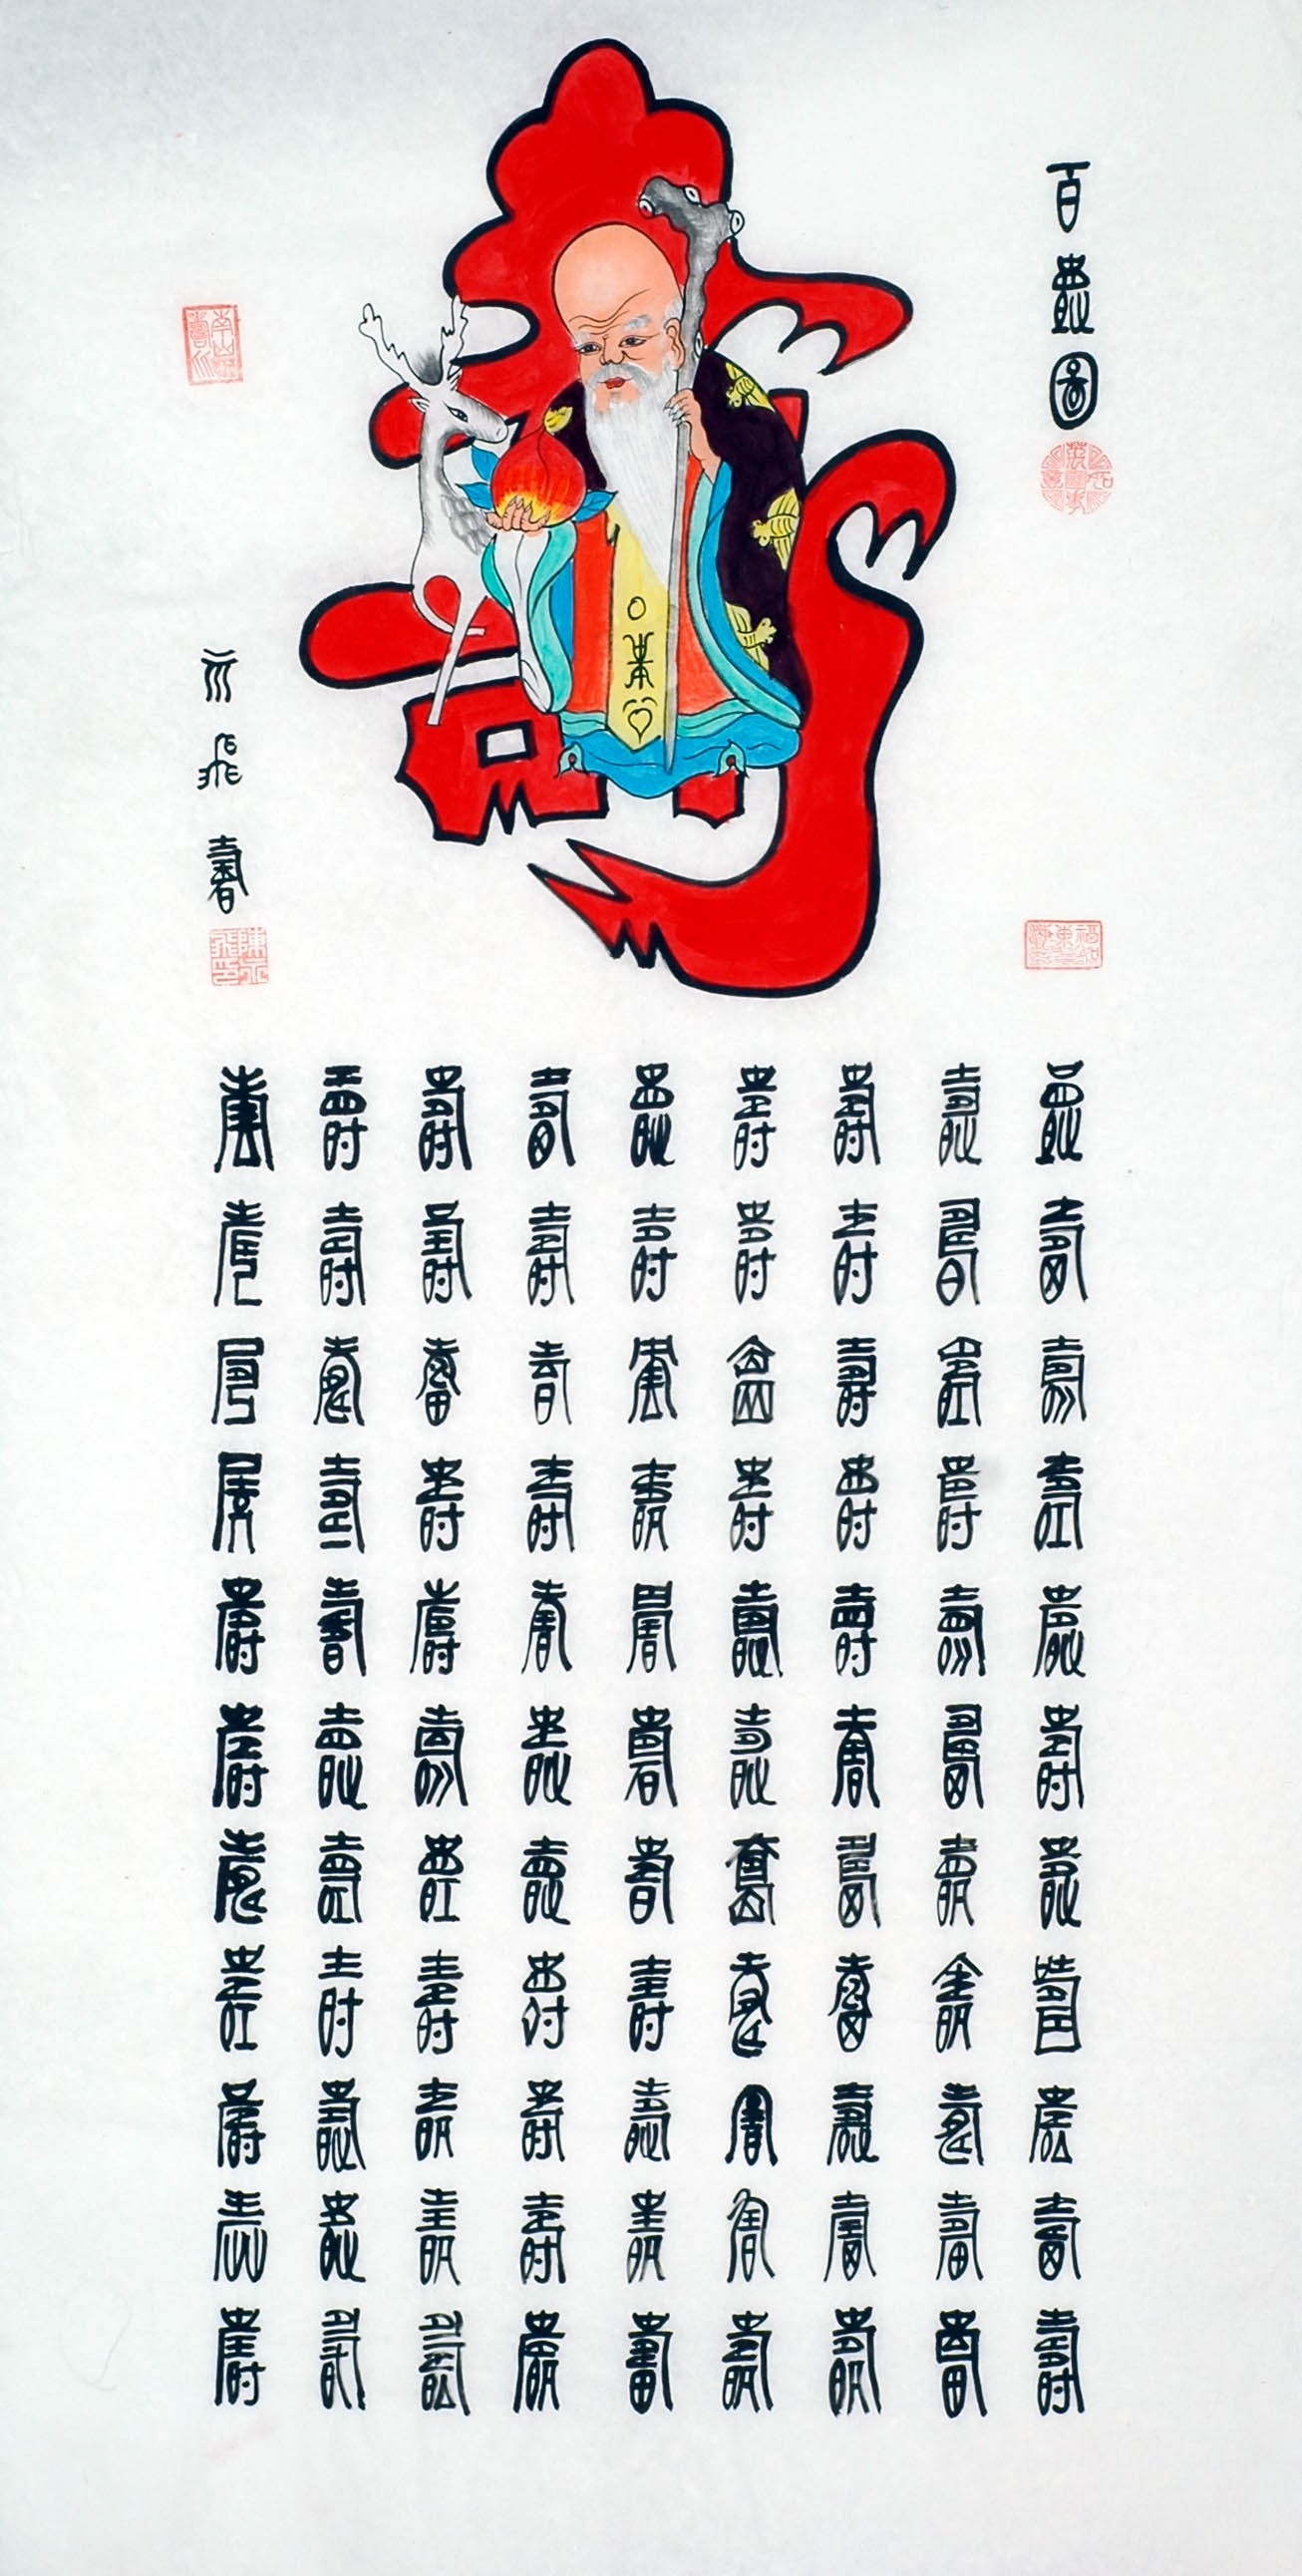 百壽圖
福如東海
壽
飛書
壽壽壽壽壽壽壽壽壽壽壽
壽壽壽壽壽壽壽壽壽壽壽
壽壽壽壽壽壽壽壽壽壽壽
壽壽壽壽壽壽壽壽壽壽壽
壽壽壽壽壽壽壽壽壽壽壽
壽壽壽壽壽壽壽壽壽壽壽
壽壽壽壽壽壽壽壽壽壽壽
壽壽壽壽壽壽壽壽壽壽壽
壽壽壽壽壽壽壽壽壽壽壽